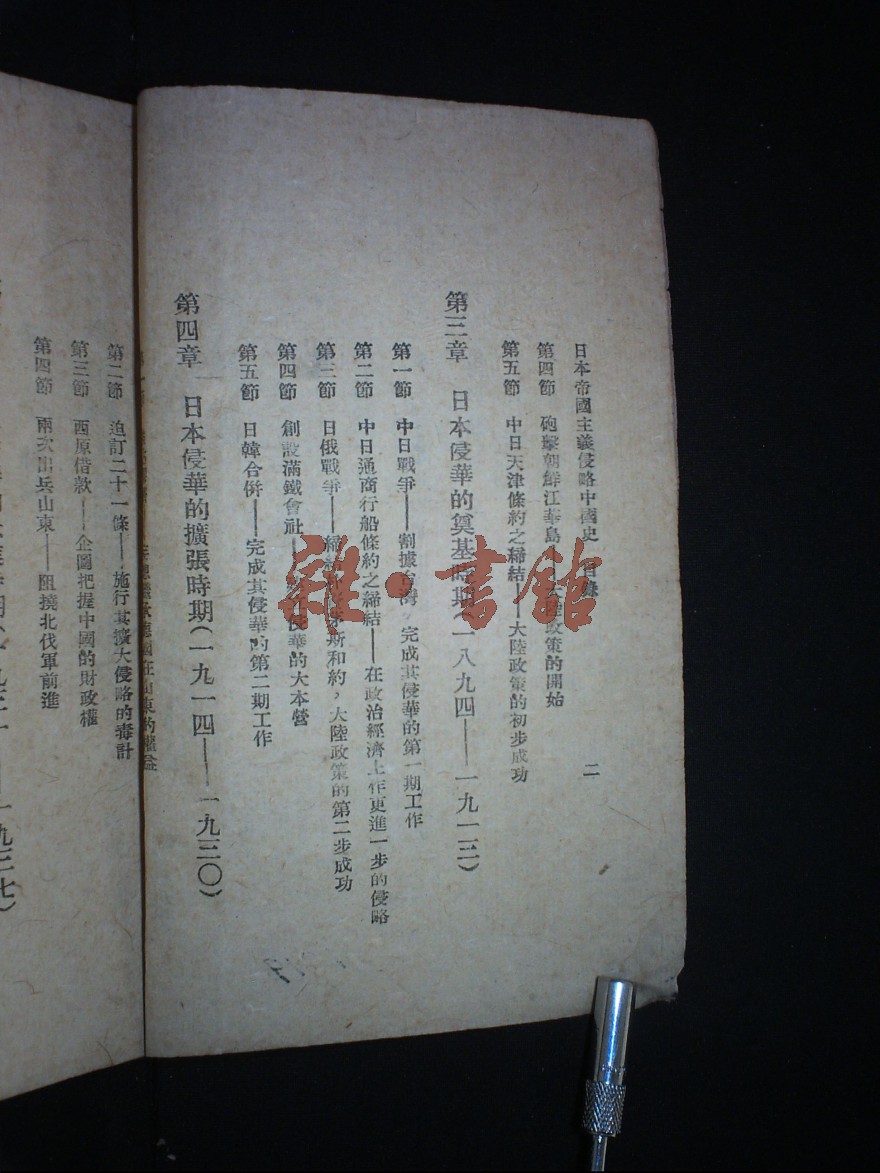 日本帝國主義侵略中國史 目錄 二
第四節 砲擊朝鮮江華島——大陸政策的開始
第五節 中日天津條約之締結——大陸政策的初步成功
第三章 日本侵華的奠基時期(一八九四——一九一三)
第一節 中日戰爭——割據台灣，完成其侵華的第一期工作
第二節 中日通商行船條約之締結——在政治經濟上作更進一步的侵略
第三節 日俄戰爭——締結 斯和約，大陸政策的第二步成功
第四節 創設滿鐵會社—— 侵華的大本營
第五節 日韓合併——完成其侵華的第二期工作
第四章 日本侵華的擴張時期(一九一四——一九三〇)
德國在山東的權益
第二節 迫訂二十一條——施行其擴大侵略的毒計
第三節 西原借款——企圖把握中國的財政權
第四節 兩次出兵山東——阻撓北伐軍前進
一九三七)
雜·書館